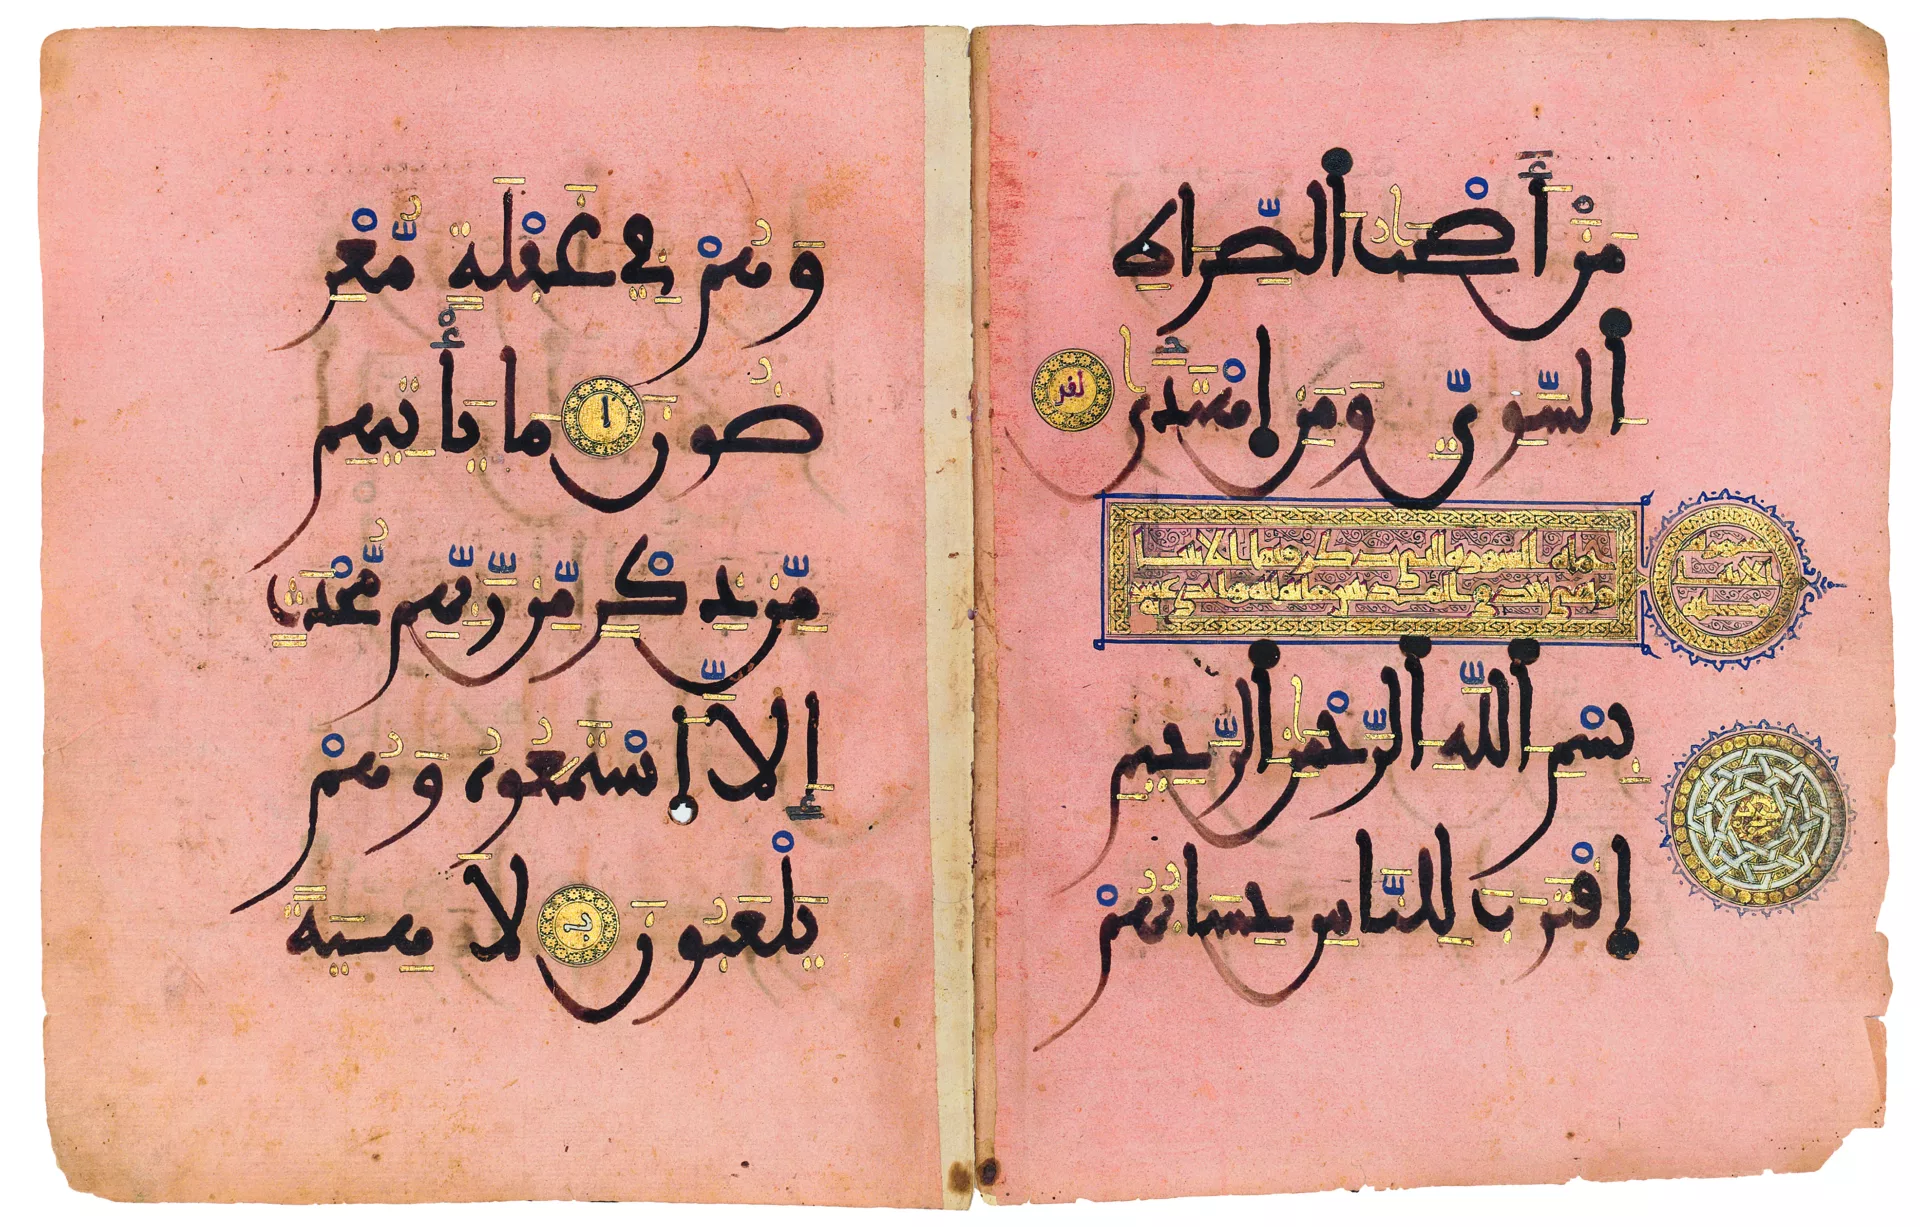 مَنْ أَصْحَٰبُ الصِّرَاطِ
السَّوِيِّ وَمَنِ اهْتَدَىٰ
السورة التي يذكر فيها الانبيا
سورة
الانبيا
مكية
بِسْمِ اللَّهِ الرَّحْمَٰنِ الرَّحِيمِ
اِقْتَرَبَ لِلنَّاسِ حِسَابُهُمْ
وَهُمْ فِي غَفْلَةٍ مُّعْرِ
ضُونَ ا مَا يَأْتِيهِم
مِّن ذِكْرٍ مِّن رَّبِّهِم مُّحْدَثٍ
إِلَّا اسْتَمَعُوهُ وَهُمْ
يَلْعَبُونَ ب لَاهِيَةً